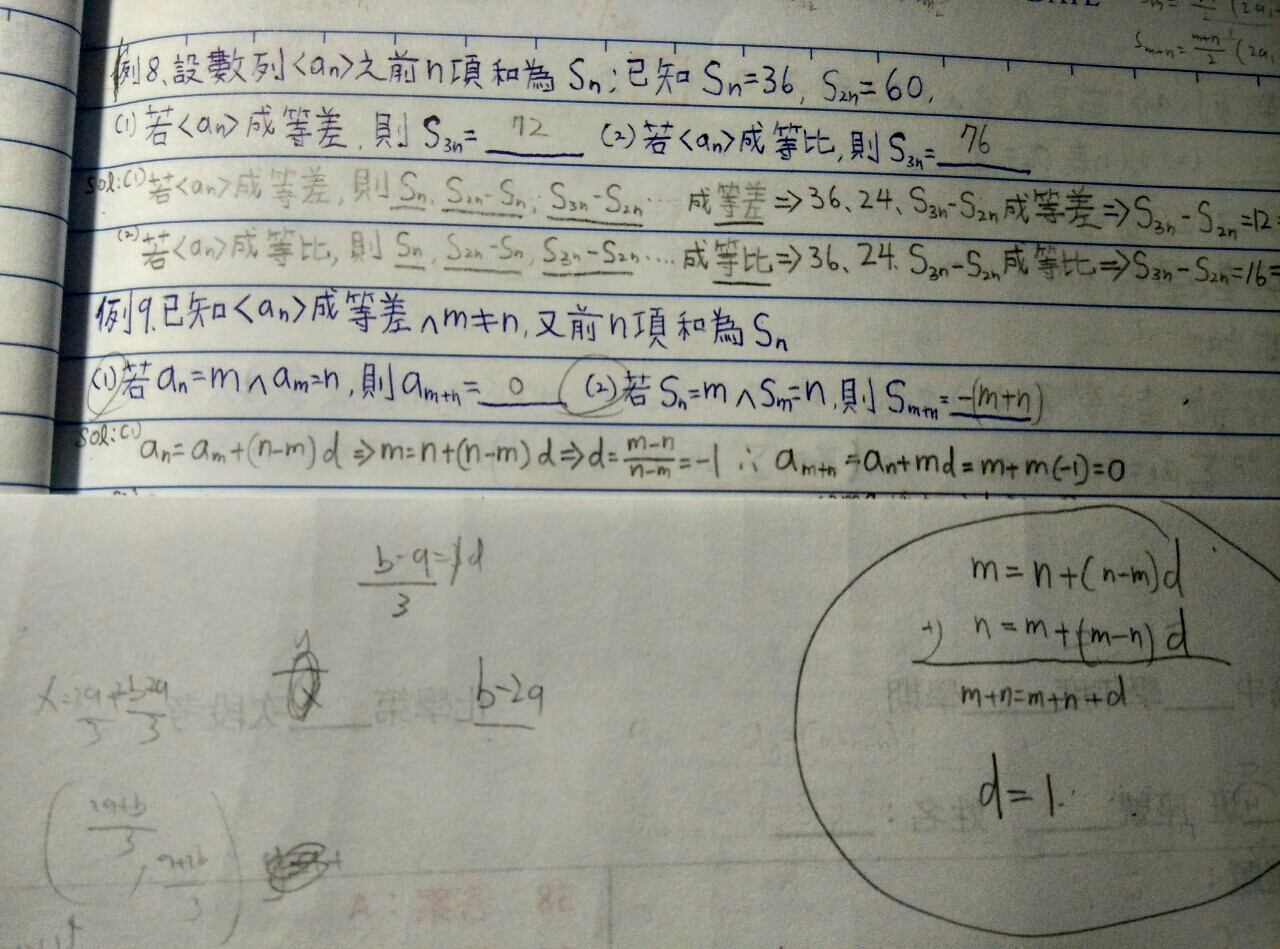 DATE
S_{m+n}=\frac{m+n}{2}(2a_1
例8.設數列<an>之前n項和為Sn;已知Sn=36, S2n=60,
(1)若<an>成等差,則S3n=72 (2)若<an>成等比,則S3n=76
sol:(1)若<an>成等差,則Sn, S2n-Sn, S3n-S2n…成等差⇒36、24、S3n-S2n成等差⇒S3n-S2n=12
(2)若<an>成等比,則Sn, S2n-Sn, S3n-S2n…成等比⇒36、24、S3n-S2n成等比⇒S3n-S2n=16=
例9.已知<an>成等差∧m≠n,又前n項和為Sn
(1)若an=m∧am=n,則am+n=0 (2)若Sn=m∧Sm=n,則Sm+n=-(m+n)
sol:(1) an=am+(n-m)d⇒m=n+(n-m)d⇒d=\frac{m-n}{n-m}=-1 ∴am+n=an+md=m+m(-1)=0
\frac{b-a}{3}=d
m=n+(n-m)d
+) n=m+(m-n)d
m+n=m+n+d
d=1.
y
b-2a
(\frac{2a+b}{3}, \frac{a+2b}{3})